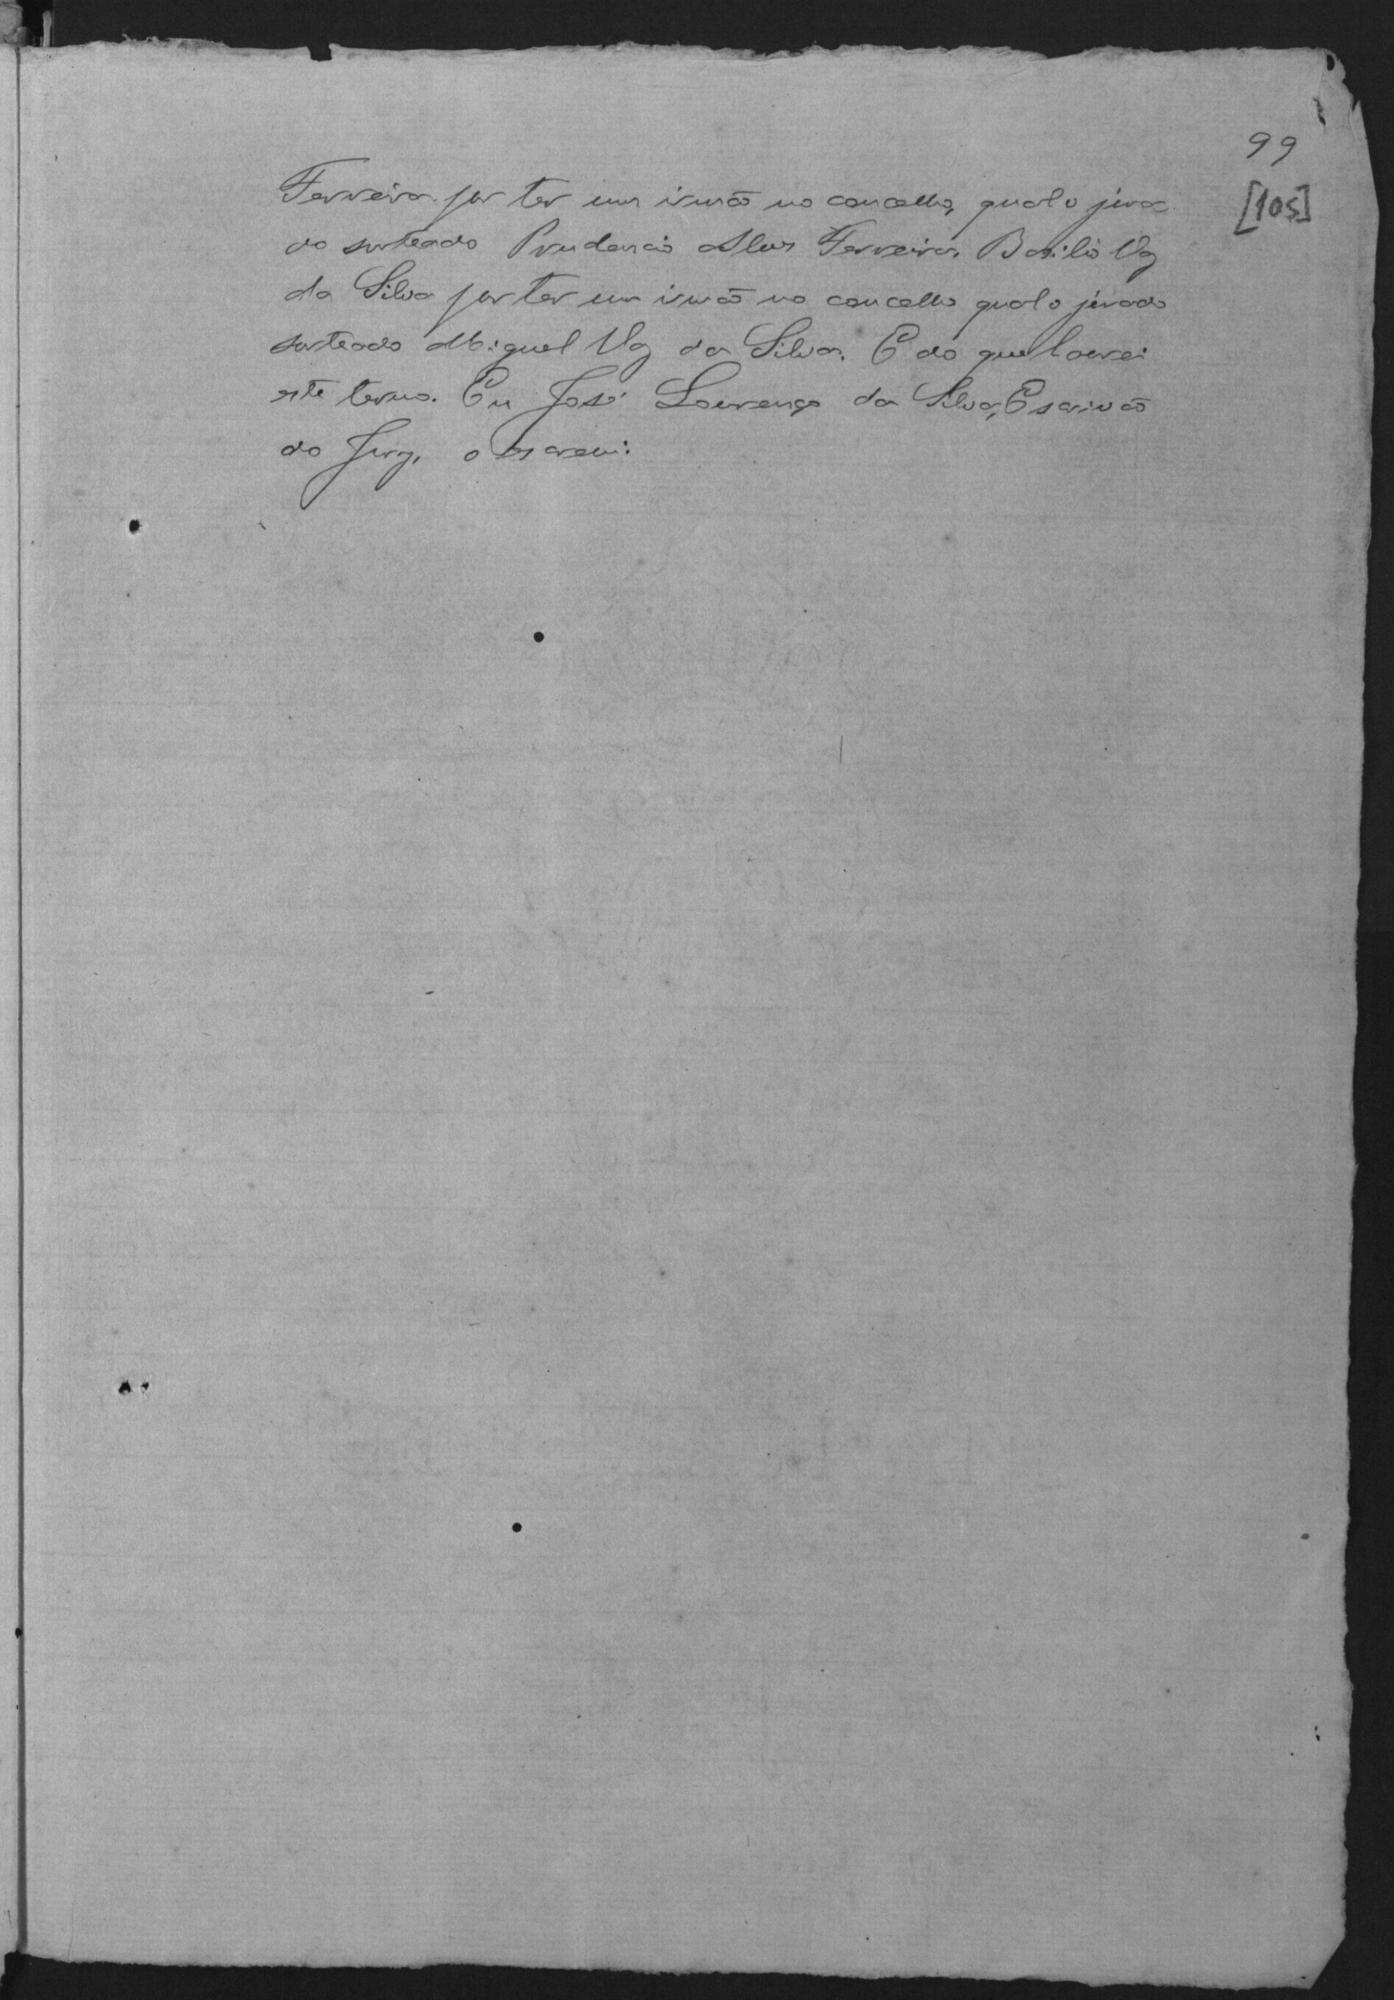 99
[105]
Ferreira por ter um irmão no concelho, qual o jura
do sorteado Prudencio Alves Ferreira, Basilio Vaz
da Silva por ter um irmão no concelho qual o jurado
sorteado Miguel Vaz da Silva. E do que lavrei
este termo. Eu José Lourenço da Silva, Escrivão
do Jury, o escrevi.